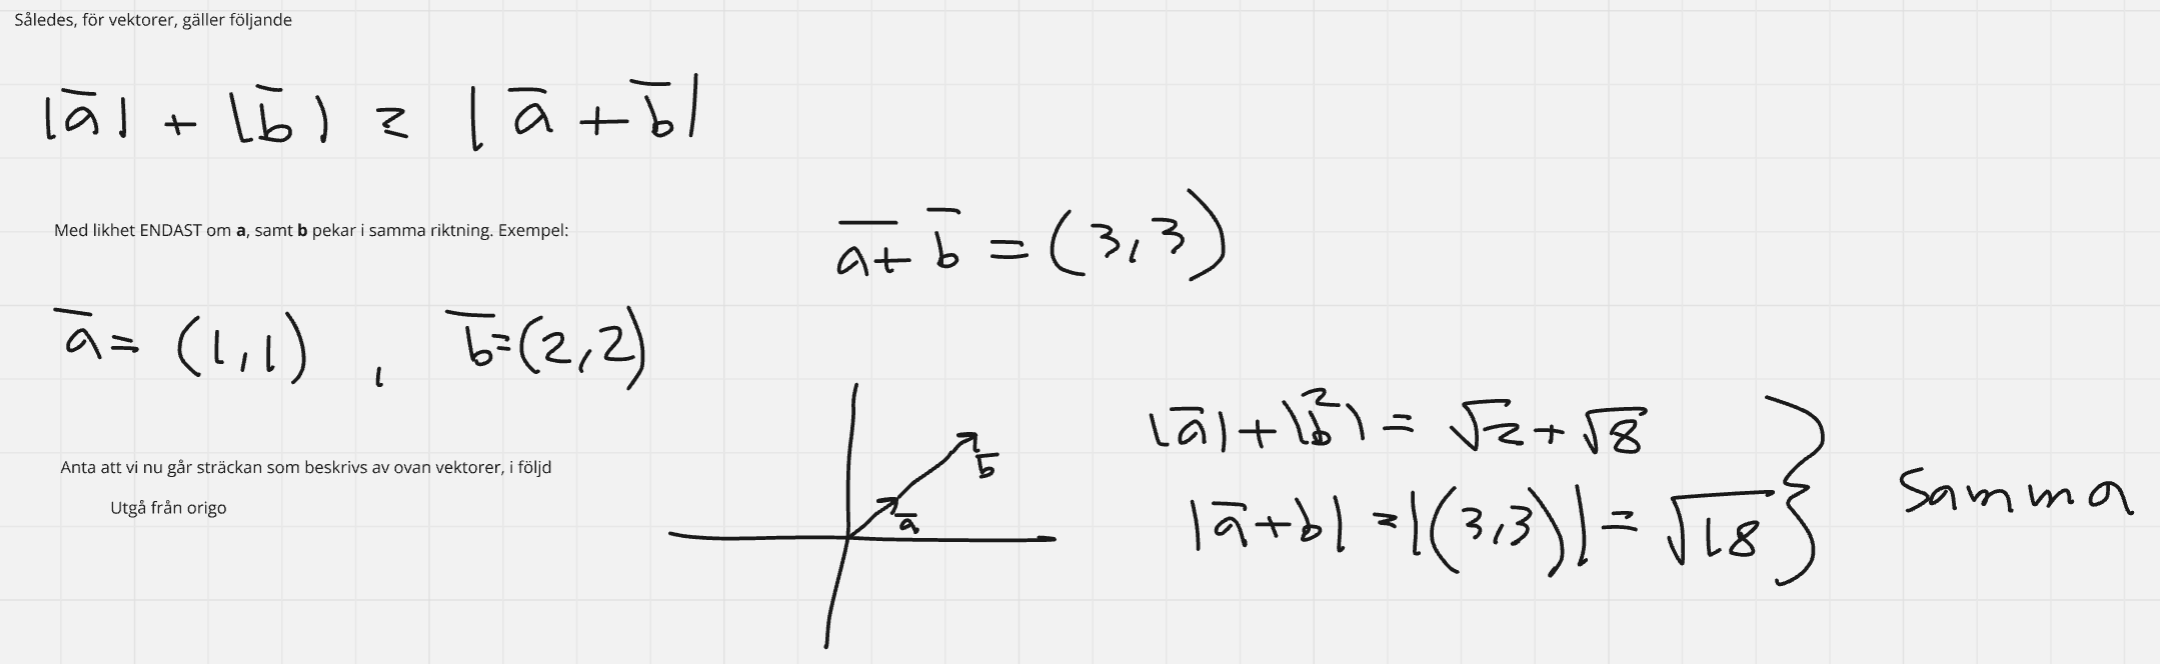 Således, för vektorer, gäller följande
|a̅| + |b̅| ≥ |a̅ + b̅|
Med likhet ENDAST om a, samt b pekar i samma riktning. Exempel:
a̅ + b̅ = (3,3)
a̅ = (1,1) , b̅ = (2,2)
Anta att vi nu går sträckan som beskrivs av ovan vektorer, i följd
Utgå från origo
a̅
b̅
|a̅| + |b̅| = √2 + √8
|a̅ + b| = |(3,3)| = √18
samma